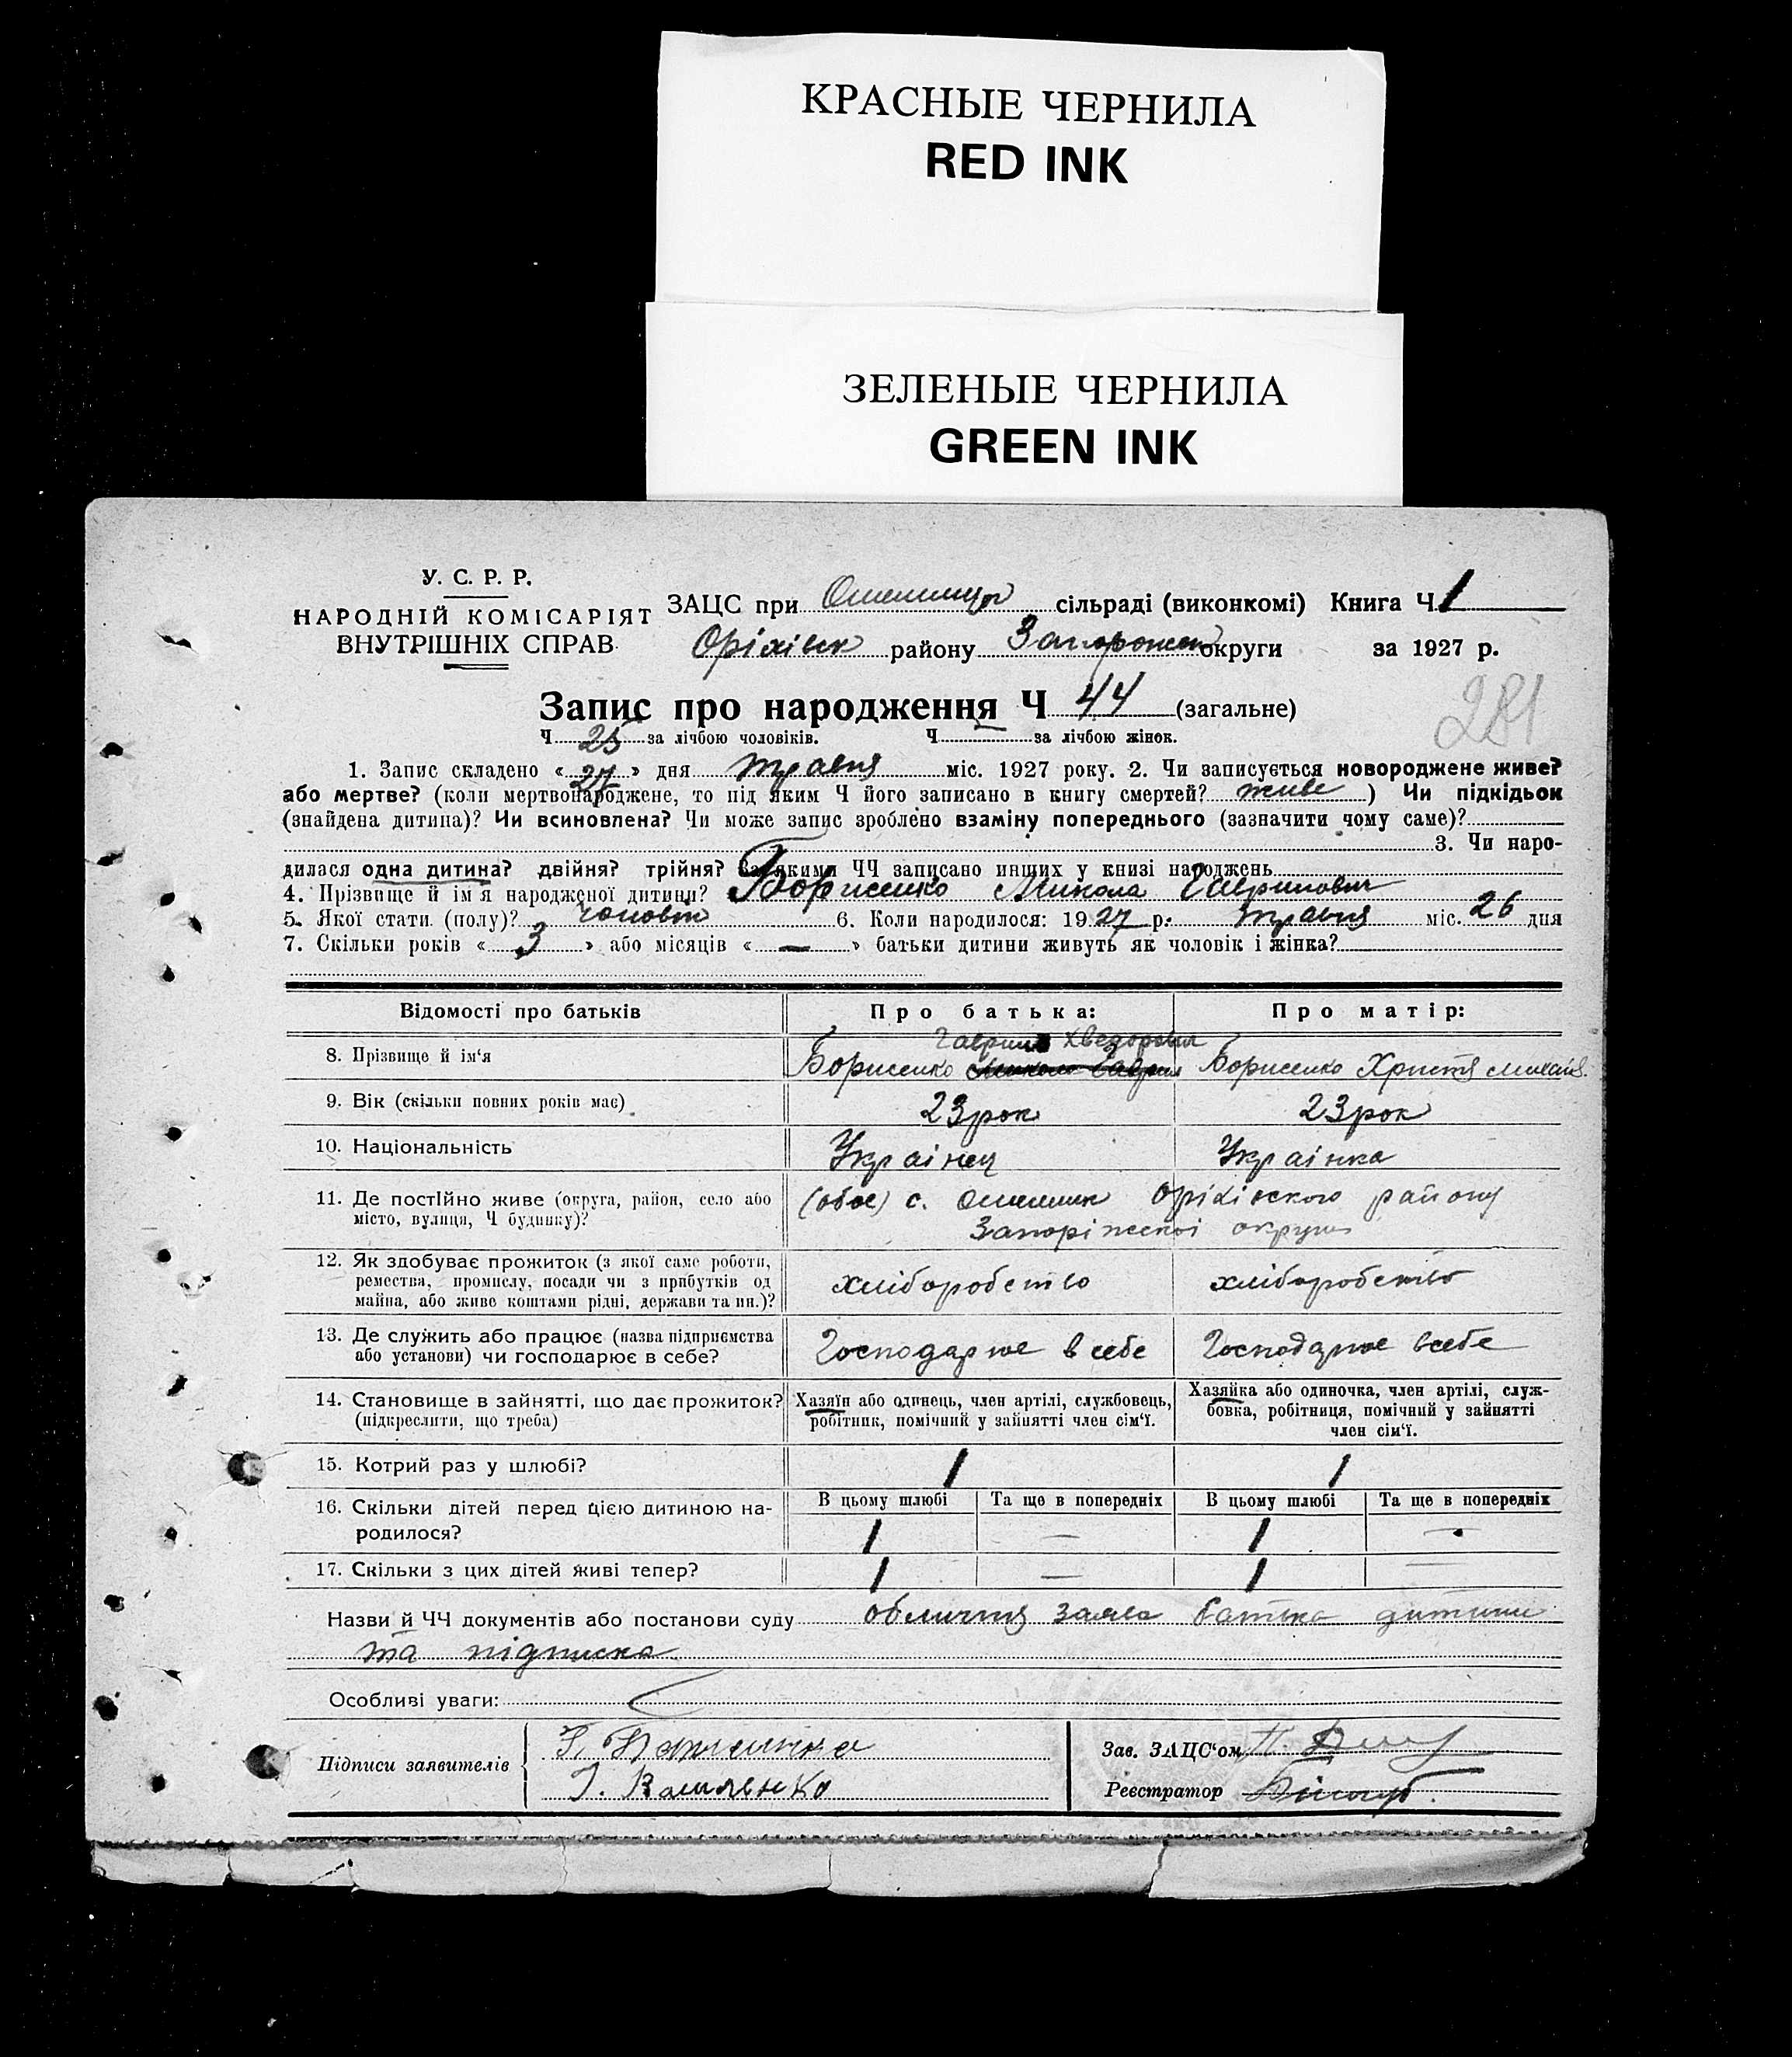 КРАСНЫЕ ЧЕРНИЛА
RED INK
ЗЕЛЕНЫЕ ЧЕРНИЛА
GREEN INK
У. С. Р. Р.
НАРОДНІЙ КОМІСАРІЯТ
ВНУТРІШНІХ СПРАВ
ЗАЦС при сільраді (виконкомі) Книга Ч. 1
Оріхівськ району Запорожск округи за 1927 р.
Запис про народження Ч 44 (загальне)
281
Ч 25 за лічбою чоловіків. Ч — за лічбою жінок.
1. Запис складено « 27 » дня травня міс. 1927 року. 2. Чи записується новороджене живе?
або мертве? (коли мертвонароджене, то під яким Ч його записано в книгу смертей? живе ) Чи підкідьок
(знайдена дитина)? Чи всиновлена? Чи може запис зроблено взаміну попереднього (зазначити чому саме)?
3. Чи наро-
дилася одна дитина? двійня? трійня? За якими ЧЧ записано инших у книзі народжень
4. Прізвище й ім'я народженої дитини? Борисенко Микола Гаврилович
5. Якої стати (полу)? чоловік 6. Коли народилося: 1927 р. травня міс. 26 дня
7. Скільки років « 3 » або місяців « — » батьки дитини живуть як чоловік і жінка?
Відомості про батьків Про батька: Про матір:
Гаврило Хведорович
8. Прізвище й ім'я Борисенко Борисенко Христя
9. Вік (скільки повних років має) 23 рок 23 рок
10. Національність Українец Українка
11. Де постійно живе (округа, район, село або
місто, вулиця, Ч будинку)?
(обоє) с. Оріхівского району
Запоріжскої округи
12. Як здобуває прожиток (з якої саме роботи,
ремества, промислу, посади чи з прибутків од
майна, або живе коштами рідні, держави та ин.)?
хліборобство хліборобство
13. Де служить або працює (назва підприємства
або установи) чи господарює в себе?
Господарює в себе Господарює в себе
14. Становище в зайнятті, що дає прожиток?
(підкреслити, що треба)
Хазяїн або одинець, член артілі, службовець,
робітник, помічний у зайнятті член сім'ї.
Хазяйка або одиночка, член артілі, служ-
бовка, робітниця, помічний у зайнятті
член сім'ї.
15. Котрий раз у шлюбі? 1 1
16. Скільки дітей перед цією дитиною на-
родилося?
В цьому шлюбі Та ще в попередніх В цьому шлюбі Та ще в попередніх
1 — 1 —
17. Скільки з цих дітей живі тепер? 1 — 1 —
Назви й ЧЧ документів або постанови суду заява батька дитини
та підписка
Особливі уваги:
Підписи заявителів
Зав. ЗАЦС'ом
Реєстратор